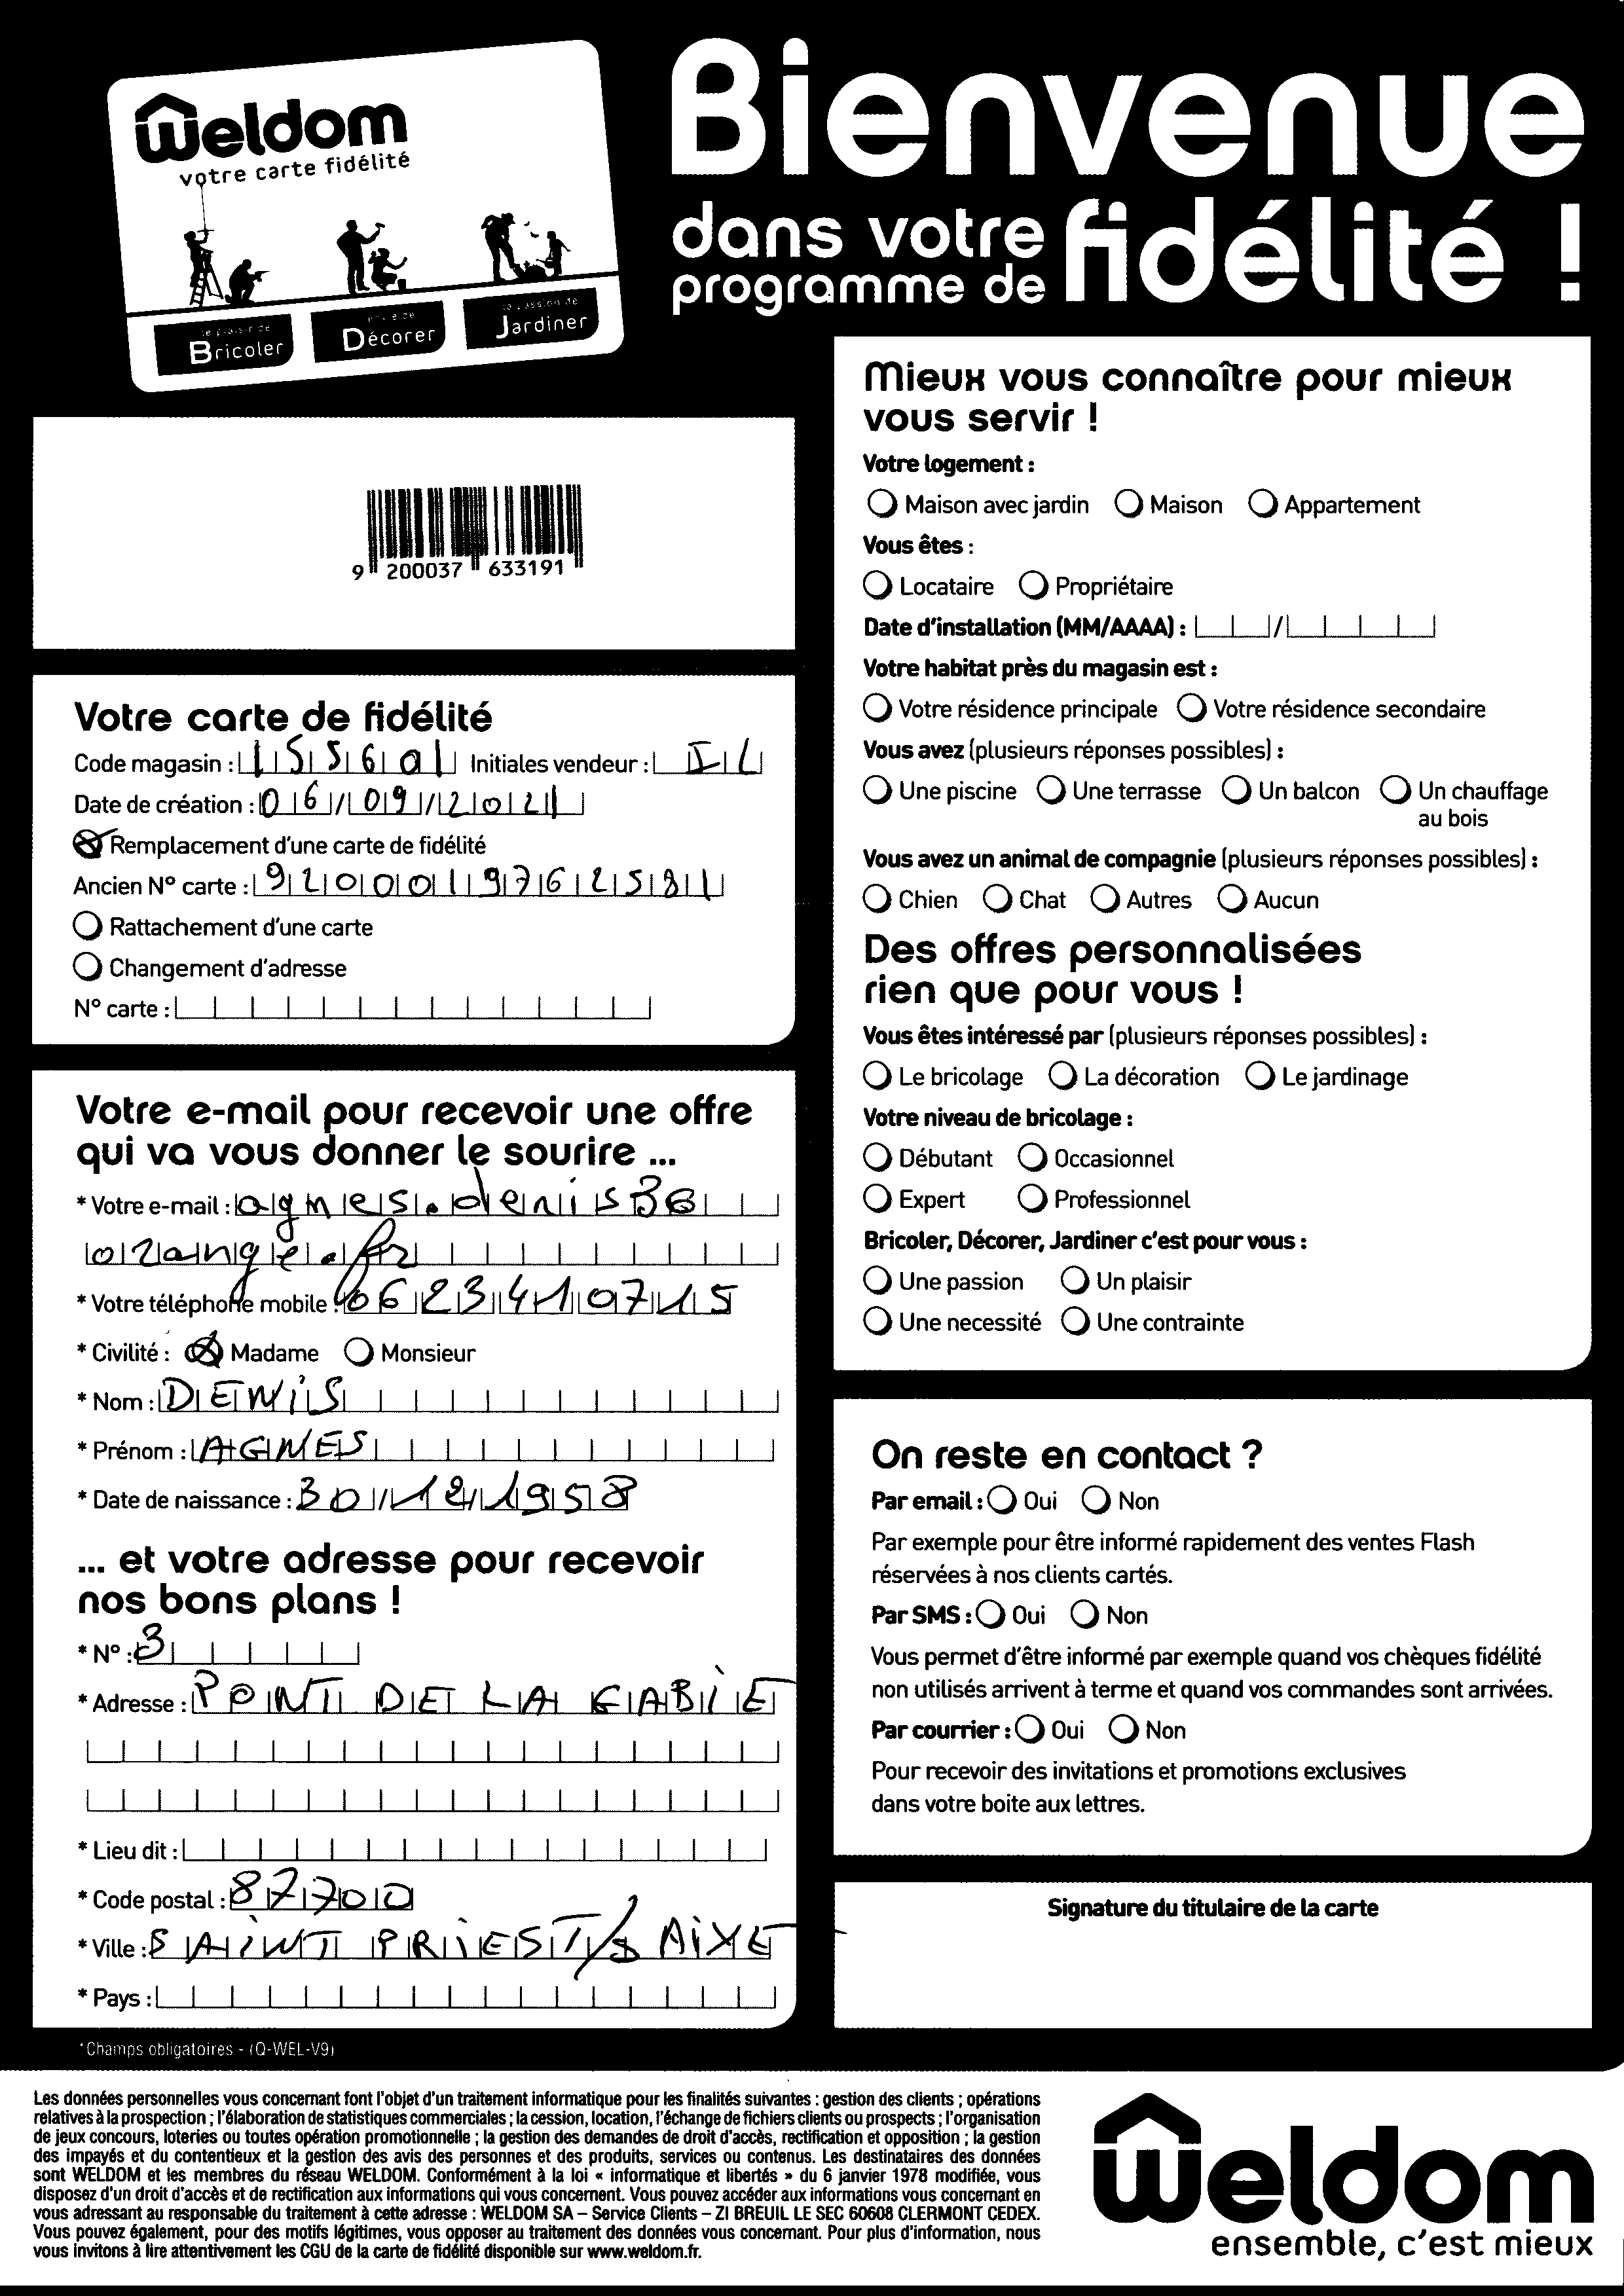 Weldom
votre carte fidélité
Bricoler
Décorer
Jardiner
Bienvenue
dans votre
programme de fidélité !
9 200037 633191
Votre carte de fidélité
Code magasin : 15560 Initiales vendeur : IL
Date de création : 06/09/2021
Remplacement d'une carte de fidélité
Ancien N° carte : 9200019762581
Rattachement d'une carte
Changement d'adresse
N° carte :
Votre e-mail pour recevoir une offre
qui va vous donner le sourire ...
* Votre e-mail : agnes.denis3@
orange.fr
* Votre téléphone mobile : 0623410715
* Civilité : Madame Monsieur
* Nom : DENiS
* Prénom : AGNES
* Date de naissance : 30/12/1958
... et votre adresse pour recevoir
nos bons plans !
* N° : 3
* Adresse : PONT DE LA GABIE
* Lieu dit :
* Code postal : 87700
* Ville : SAiNT PRiEST/S AiXE
* Pays :
*Champs obligatoires - (Q-WEL-V9)
Mieux vous connaître pour mieux
vous servir !
Votre logement :
Maison avec jardin Maison Appartement
Vous êtes :
Locataire Propriétaire
Date d'installation (MM/AAAA) : /
Votre habitat près du magasin est :
Votre résidence principale Votre résidence secondaire
Vous avez (plusieurs réponses possibles) :
Une piscine Une terrasse Un balcon Un chauffage
au bois
Vous avez un animal de compagnie (plusieurs réponses possibles) :
Chien Chat Autres Aucun
Des offres personnalisées
rien que pour vous !
Vous êtes intéressé par (plusieurs réponses possibles) :
Le bricolage La décoration Le jardinage
Votre niveau de bricolage :
Débutant Occasionnel
Expert Professionnel
Bricoler, Décorer, Jardiner c'est pour vous :
Une passion Un plaisir
Une necessité Une contrainte
On reste en contact ?
Par email : Oui Non
Par exemple pour être informé rapidement des ventes Flash
réservées à nos clients cartés.
Par SMS : Oui Non
Vous permet d'être informé par exemple quand vos chèques fidélité
non utilisés arrivent à terme et quand vos commandes sont arrivées.
Par courrier : Oui Non
Pour recevoir des invitations et promotions exclusives
dans votre boite aux lettres.
Signature du titulaire de la carte
Les données personnelles vous concernant font l'objet d'un traitement informatique pour les finalités suivantes : gestion des clients ; opérations
relatives à la prospection ; l'élaboration de statistiques commerciales ; la cession, location, l'échange de fichiers clients ou prospects ; l'organisation
de jeux concours, loteries ou toutes opération promotionnelle ; la gestion des demandes de droit d'accès, rectification et opposition ; la gestion
des impayés et du contentieux et la gestion des avis des personnes et des produits, services ou contenus. Les destinataires des données
sont WELDOM et les membres du réseau WELDOM. Conformément à la loi « informatique et libertés » du 6 janvier 1978 modifiée, vous
disposez d'un droit d'accès et de rectification aux informations qui vous concernent. Vous pouvez accéder aux informations vous concernant en
vous adressant au responsable du traitement à cette adresse : WELDOM SA – Service Clients – ZI BREUIL LE SEC 60608 CLERMONT CEDEX.
Vous pouvez également, pour des motifs légitimes, vous opposer au traitement des données vous concernant. Pour plus d'information, nous
vous invitons à lire attentivement les CGU de la carte de fidélité disponible sur www.weldom.fr.
Weldom
ensemble, c'est mieux